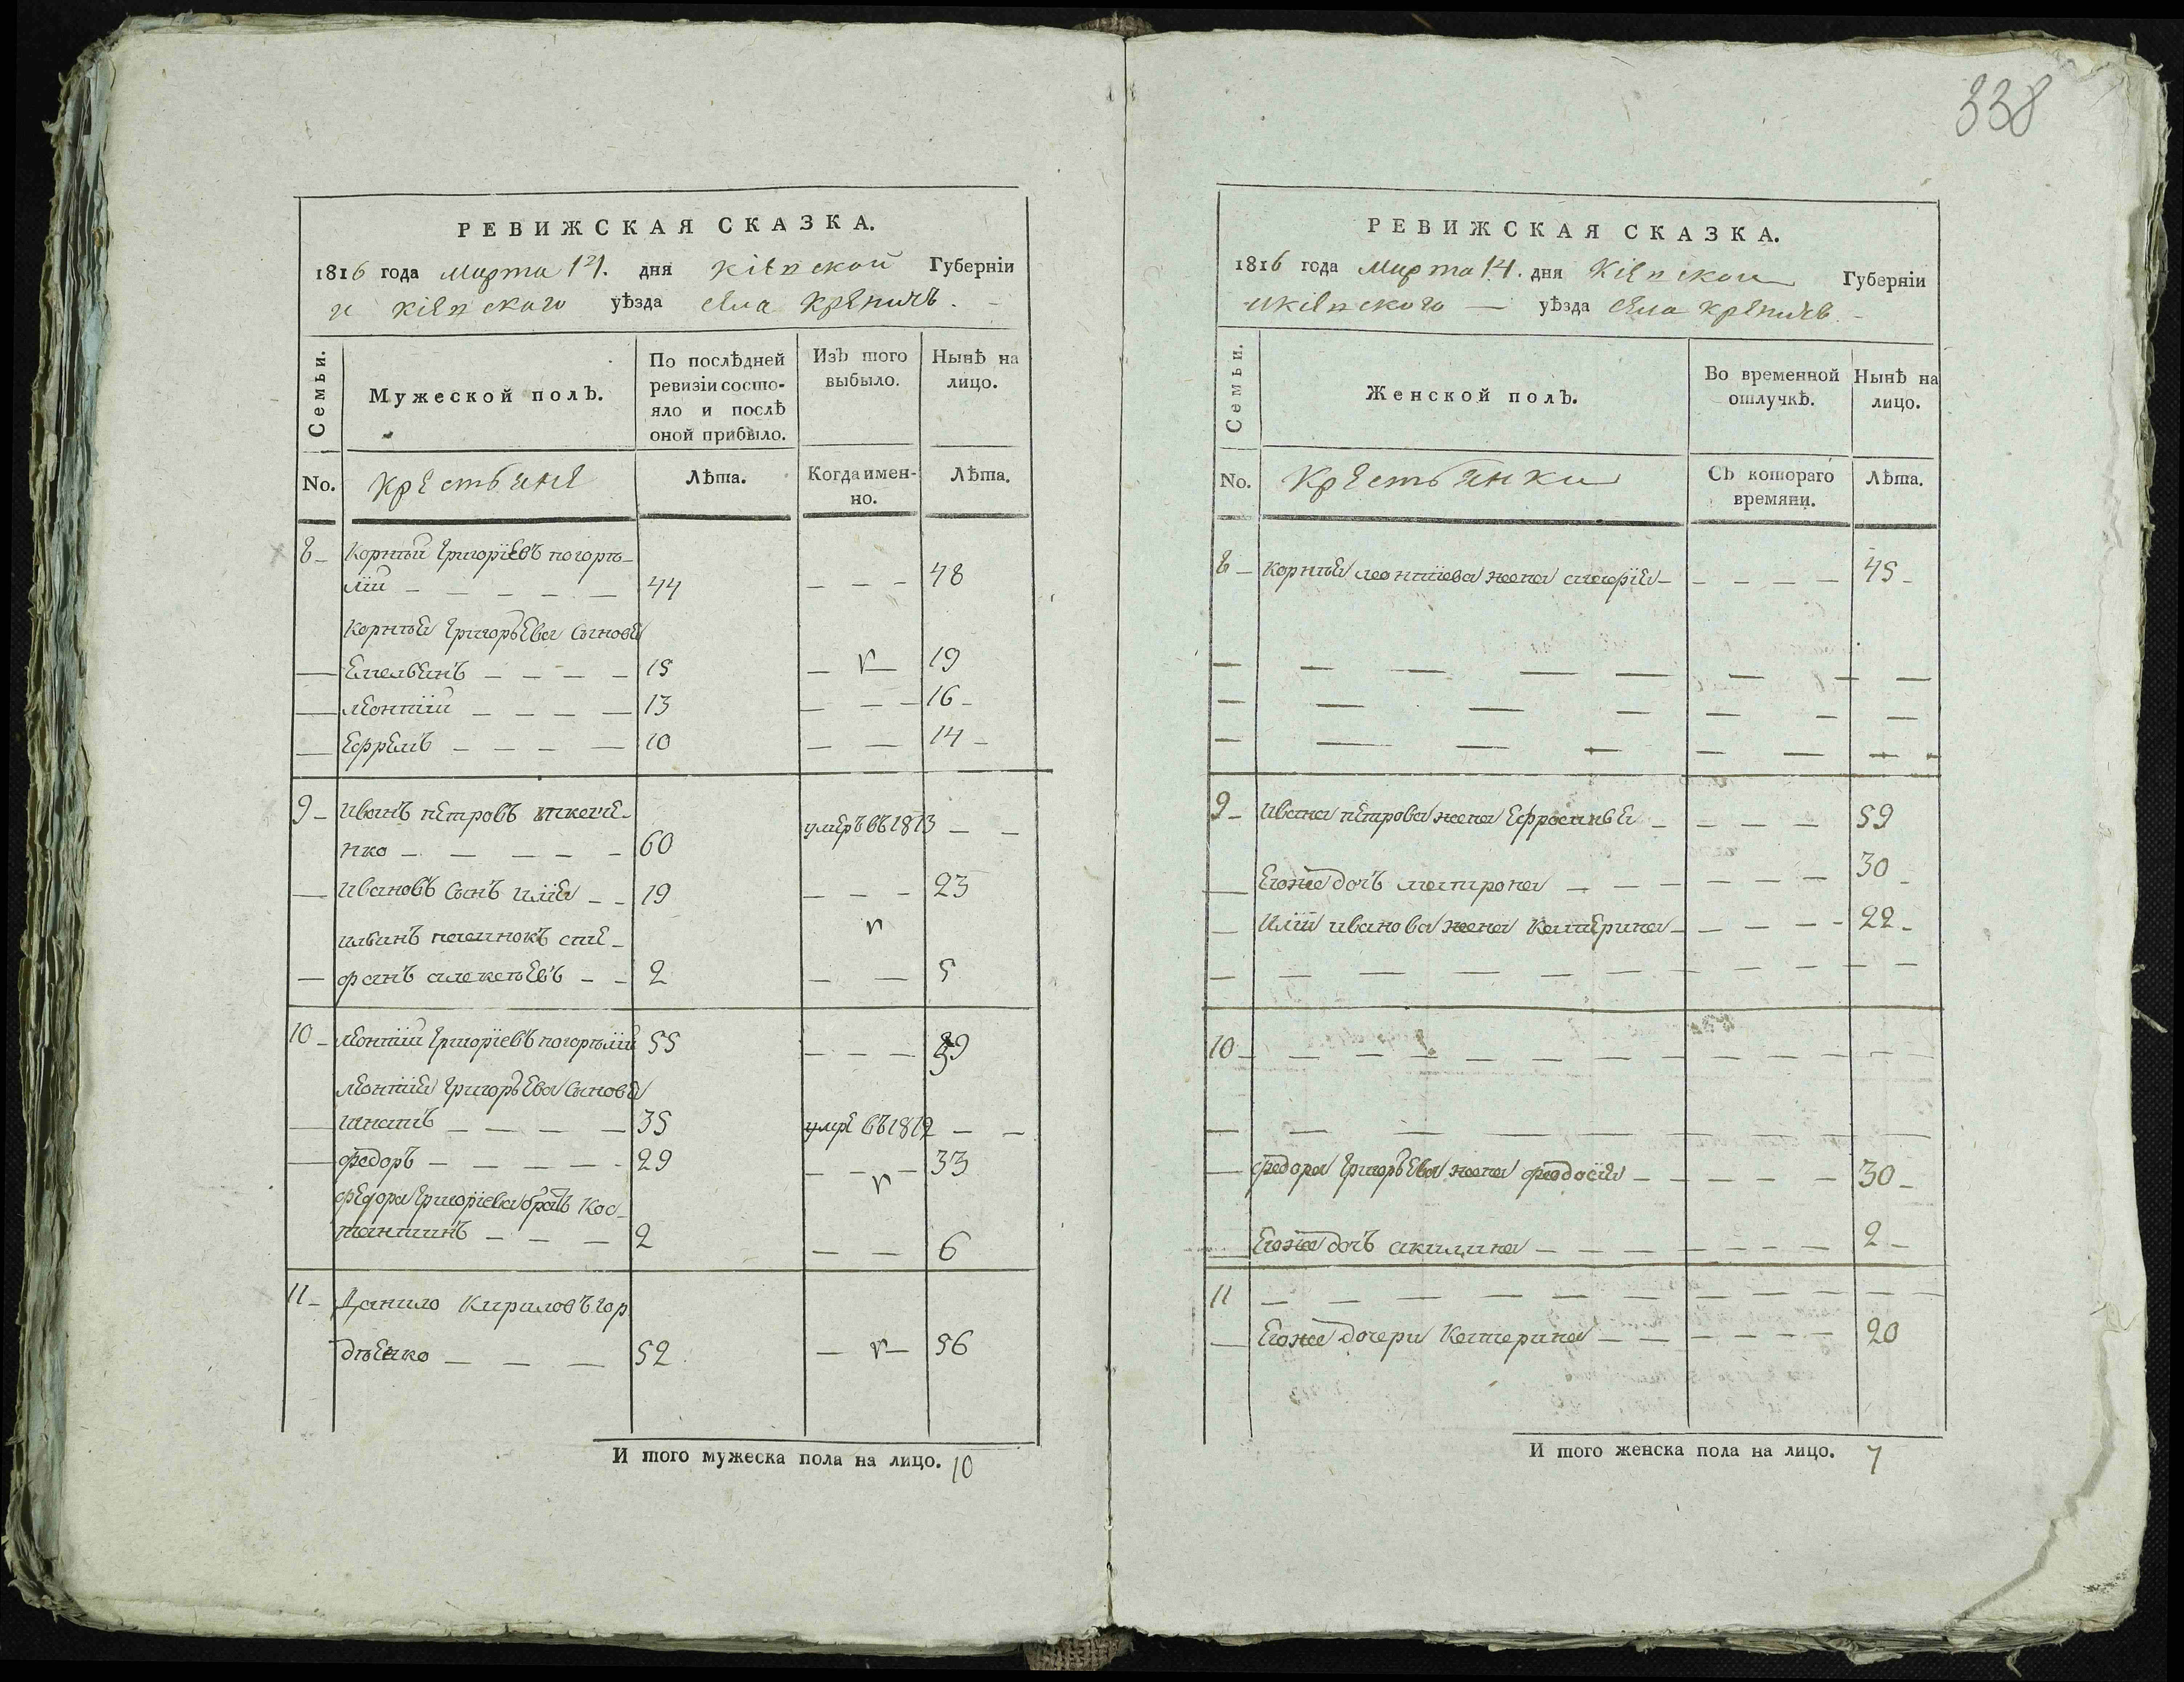 338
РЕВИЖСКАЯ СКАЗКА.
1816 года марта 14. дня кіевской Губерніи
и кіевского уѣзда села креничъ.
Семьи.
Мужеской полъ.
По послѣдней ревизіи состояло и послѣ оной прибыло.
Изъ того выбыло.
Нынѣ на лицо.
No. крестьяне Лѣта. Когда именно. Лѣта.
8 – Корнѣй григоріевъ погорѣ–
лій – – – – – 44 – – – 48
Корнѣя григорьева сыновя
— Емельянъ – – – – 15 – – 19
— леонтій – – – – 13 – – – 16 –
— Ефремъ – – – – 10 – – 14 –
9 – иванъ петровъ
нко – – – – – 60 умеръ въ 1813 – –
— ивановъ сынъ илія – – 19 – – – 23
ильинъ пасинокъ сте–
— фанъ алексѣевъ – – 2 – – 5
10 – леонтій григоріевъ погорѣлій 55 – – – 59
леонтія григорьева сыновя
— игнатъ – – – – 35 умре въ 1812 – –
— федоръ – – – – – 29 – – – 33
федора григоріева братъ Кос–
тантинъ – – – 2 – – 6
11 – Данило Кириловъ гор
дѣенко – – – 52 – – 56
И того мужеска пола на лицо. 10
РЕВИЖСКАЯ СКАЗКА.
1816 года марта 14. дня Кіевской Губерніи
и кіевского — уѣзда села креничъ –
Семьи.
Женской полъ.
Во временной отлучкѣ.
Нынѣ на лицо.
No. Крестьянки Съ котораго времяни. Лѣта.
8 – корнѣя леонтіева жена марія – – – – – 45 –
9 – ивана петрова жена Ефросинья – – – – 59
— Егоже дочъ матрона – – – – – – 30 –
— Иліи иванова жена Катерина – – – – – 22 –
10 – – – – – – – – – – – –
— федора григорьева жена феодосія – – – – – 30 –
— Егоже дочъ акилина – – – – – – – – 2 –
11 – – – – – – – – – – – –
— Егоже дочери Катерина – – – – – – 20
И того женска пола на лицо. 7